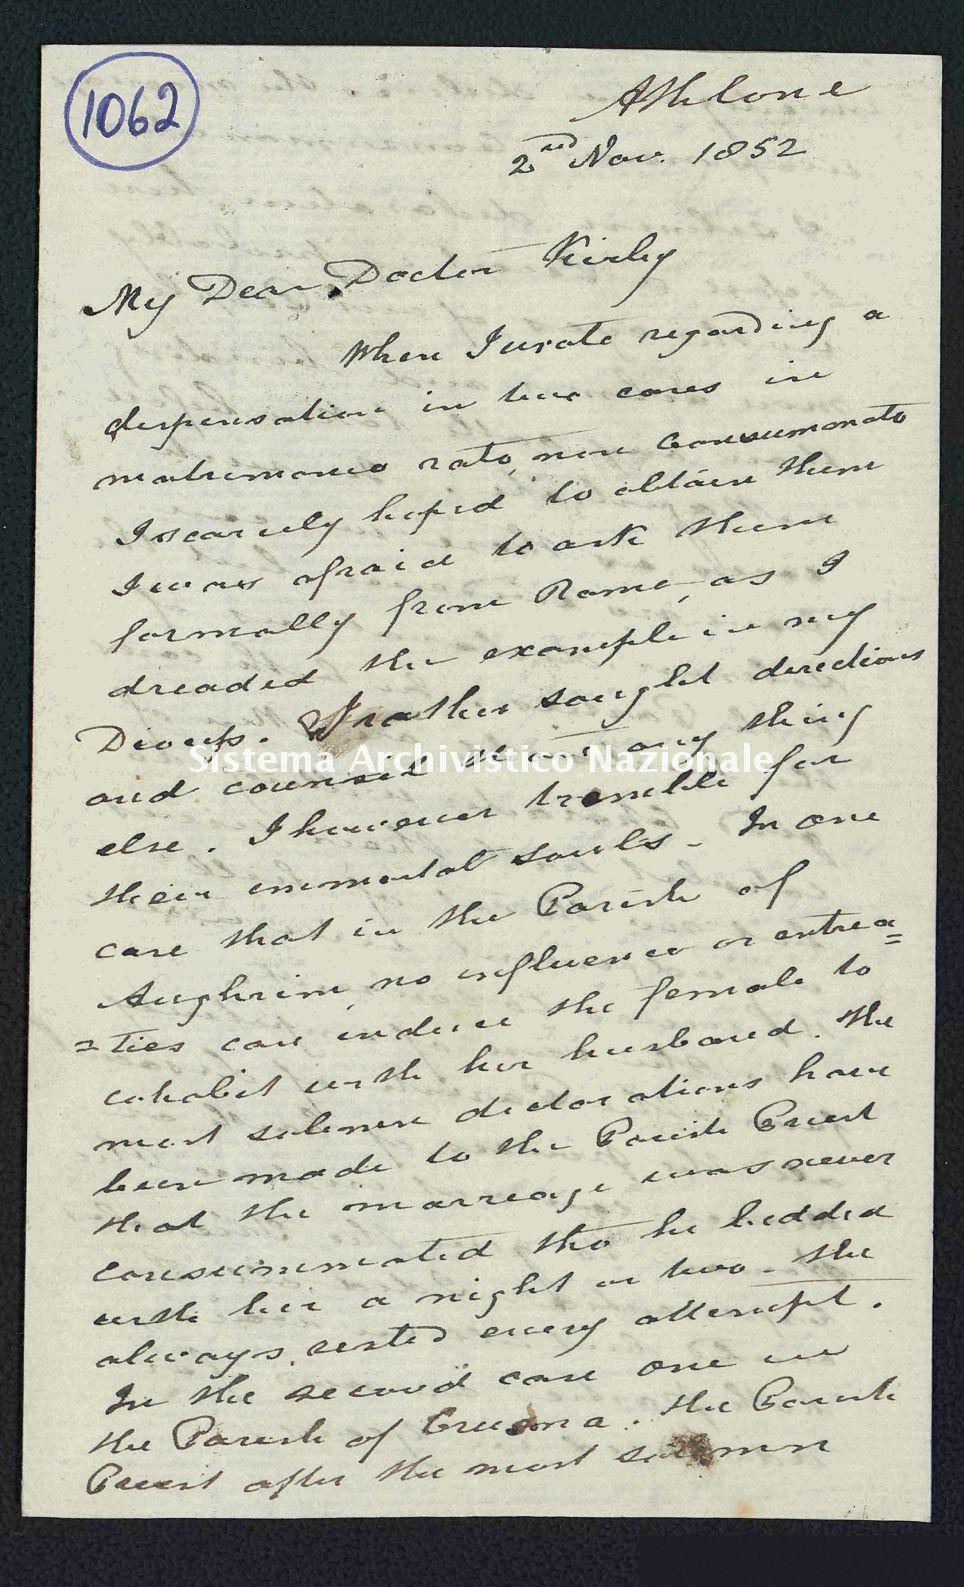 1062
Athlone
2nd Nov. 1852
My Dear Doctor Kirby
When I wrote regarding a
dispensation in two cases in
matrimonio rato, non Consummato
I scarcely hoped to obtain them
I was afraid to ask them
formally from Rome, as I
dreaded the example in my
Diocess. I rather sought directions
and counsel than any thing
else. I however tremble for
their immortal souls - In one
case that in the Parish of
Aughrim, no influence or entrea=
=ties can induce the female to
cohabit with her husband. The
most solemn declarations have
been made to the Parish Priest
that the marreage was never
consummated tho he bedded
with her a night or two - She
always resisted every attempt.
In the second case one in
the Parish of . The Parish
Priest after the most solemn
Sistema Archivistico Nazionale